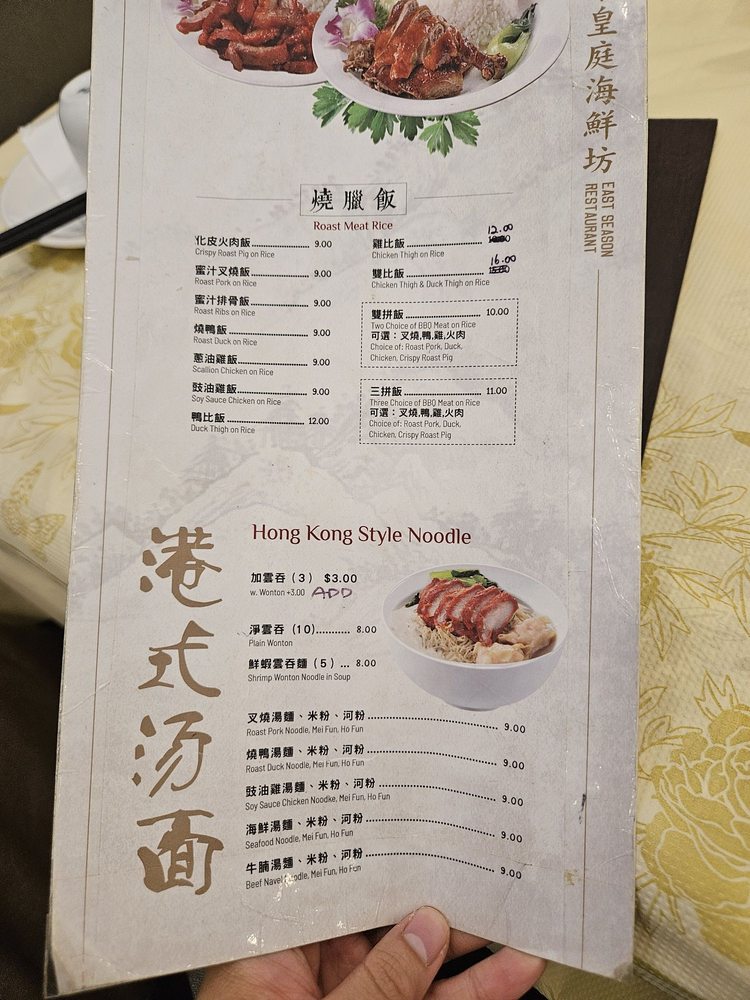 皇庭海鮮坊
EAST SEASON
RESTAURANT
燒臘飯
Roast Meat Rice
化皮火肉飯 9.00
Crispy Roast Pig on Rice
蜜汁叉燒飯 9.00
Roast Pork on Rice
蜜汁排骨飯 9.00
Roast Ribs on Rice
燒鴨飯 9.00
Roast Duck on Rice
蔥油雞飯 9.00
Scallion Chicken on Rice
豉油雞飯 9.00
Soy Sauce Chicken on Rice
鴨比飯 12.00
Duck Thigh on Rice
雞比飯 12.00
Chicken Thigh on Rice
雙比飯 16.00
Chicken Thigh & Duck Thigh on Rice
雙拼飯 10.00
Two Choice of BBQ Meat on Rice
可選：叉燒,鴨,雞,火肉
Choice of: Roast Pork, Duck,
Chicken, Crispy Roast Pig
三拼飯 11.00
Three Choice of BBQ Meat on Rice
可選：叉燒,鴨,雞,火肉
Choice of: Roast Pork, Duck,
Chicken, Crispy Roast Pig
港式汤面
Hong Kong Style Noodle
加雲吞（3） $3.00
w. Wonton +3.00 ADD
淨雲吞（10） 8.00
Plain Wonton
鮮蝦雲吞麵（5） 8.00
Shrimp Wonton Noodle in Soup
叉燒湯麵、米粉、河粉 9.00
Roast Pork Noodle, Mei Fun, Ho Fun
燒鴨湯麵、米粉、河粉 9.00
Roast Duck Noodle, Mei Fun, Ho Fun
豉油雞湯麵、米粉、河粉 9.00
Soy Sauce Chicken Noodke, Mei Fun, Ho Fun
海鮮湯麵、米粉、河粉 9.00
Seafood Noodle, Mei Fun, Ho Fun
牛腩湯麵、米粉、河粉 9.00
Beef Navel Noodle, Mei Fun, Ho Fun